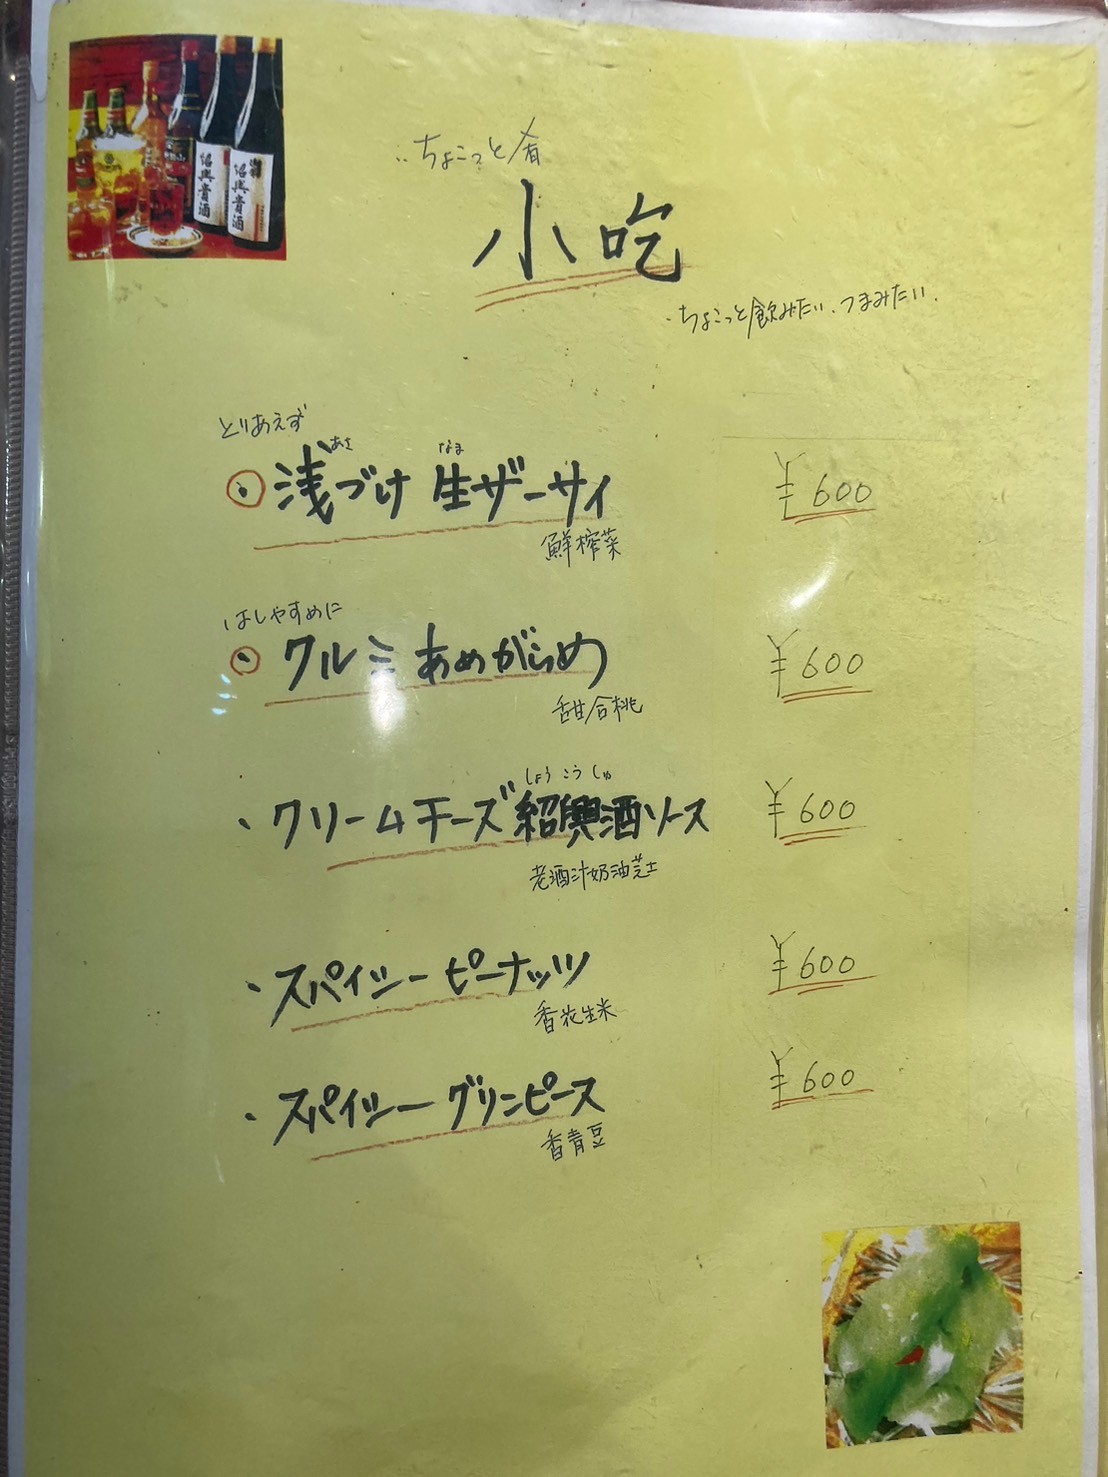 紹興貴酒
紹興貴酒
ちょこっと肴
小吃
ちょこっと飲みたい、つまみたい.
とりあえず
あさ なま
浅づけ 生ザーサイ ¥600
鮮榨菜
はしやすめに
クルミ あめがらめ ¥600
甜合桃
しょうこうしゅ
・クリームチーズ紹興酒ソース ¥600
老酒汁奶油芝士
・スパイシー ピーナッツ ¥600
香花生米
・スパイシー グリンピース ¥600
香青豆